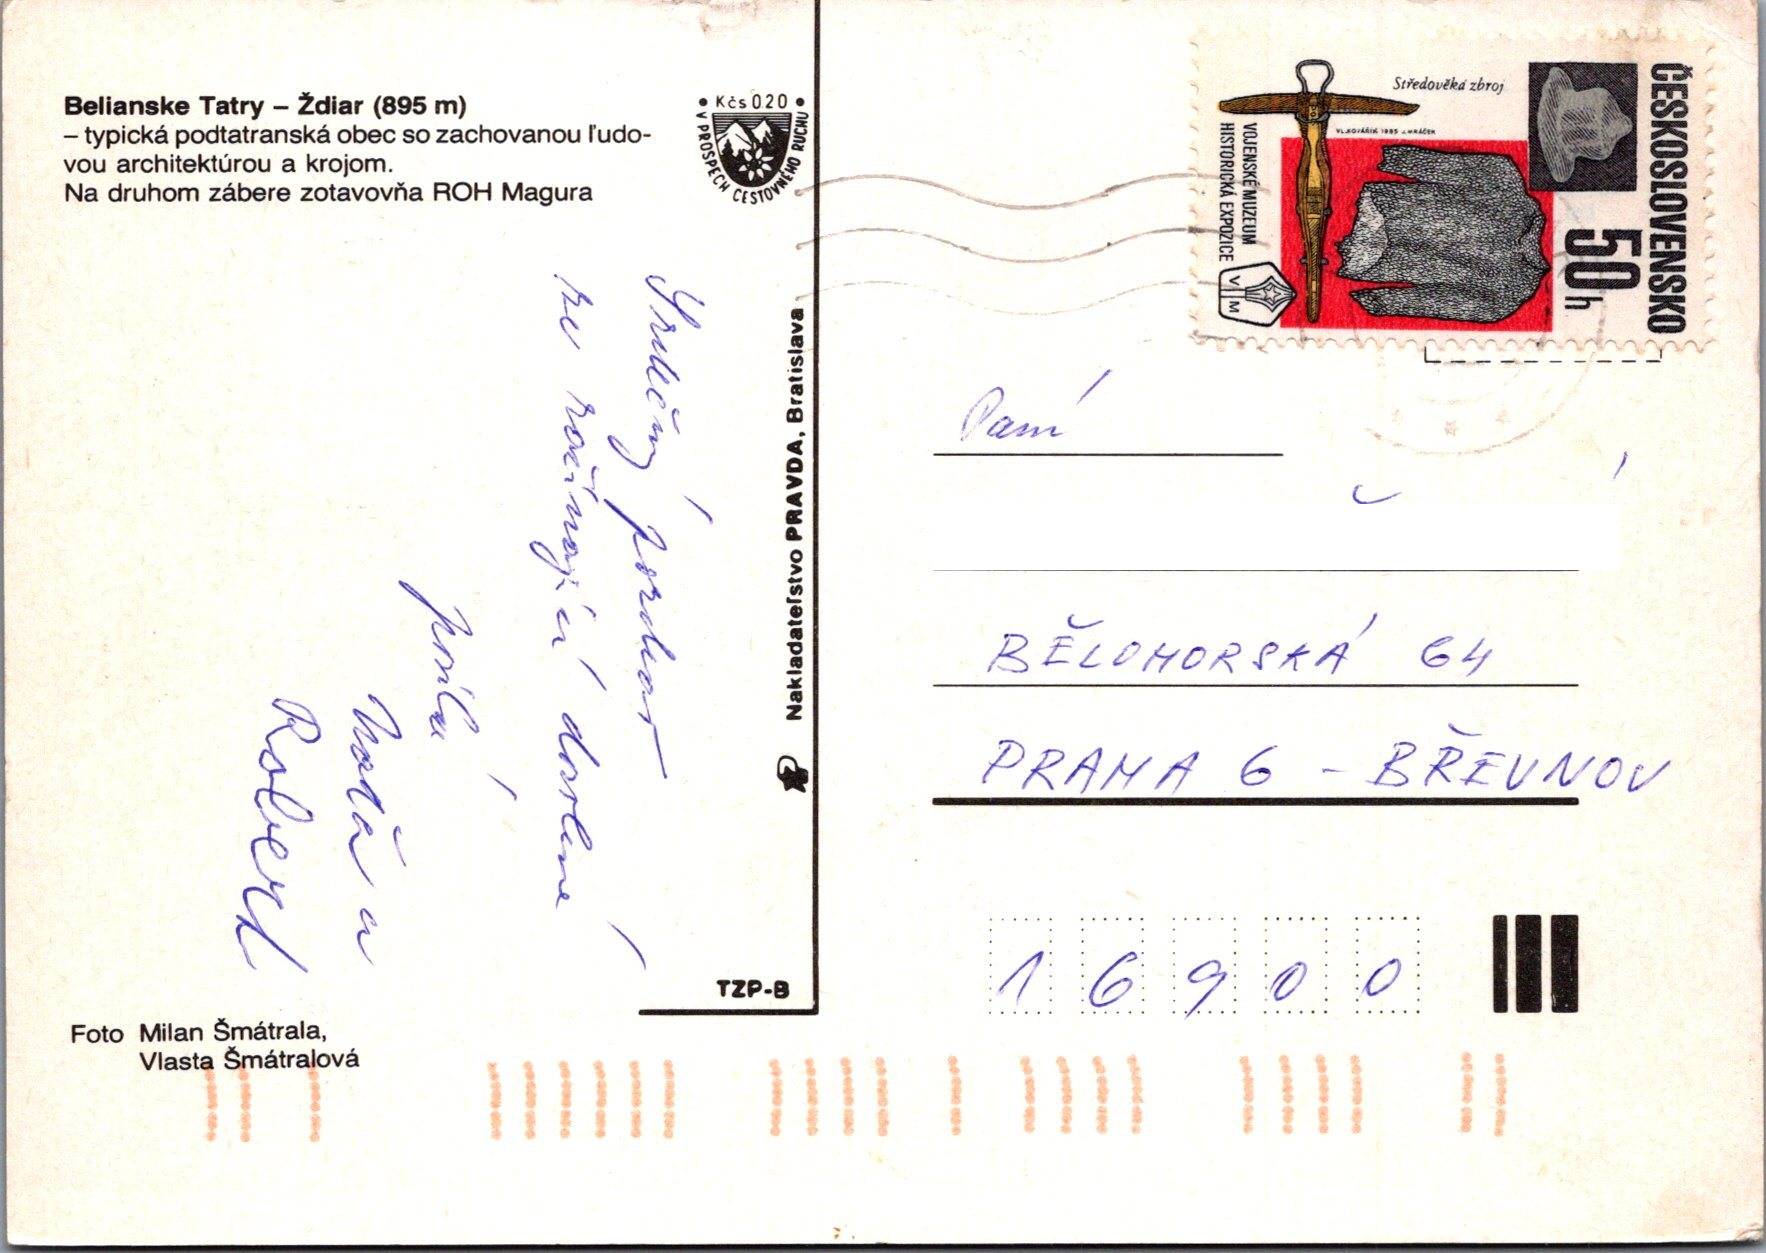 Belianske Tatry – Ždiar (895 m)
– typická podtatranská obec so zachovanou ľudo-
vou architektúrou a krojom.
Na druhom zábere zotavovňa ROH Magura
• Kčs 0.20 •
V PROSPECH CESTOVNÉHO RUCHU
Srdečný pozdrav
ze začínající dovolené
posílá
Naďa a
Robert
Nakladateľstvo PRAVDA, Bratislava
TZP-B
Foto Milan Šmátrala,
Vlasta Šmátralová
ČESKOSLOVENSKO
50 h
Středověká zbroj
VL. KOVÁŘÍK 1985 J. MRÁČEK
VOJENSKÉ MUZEUM
HISTORICKÁ EXPOZICE
V M
Paní
BĚLOHORSKÁ 64
PRAHA 6 - BŘEVNOV
16900